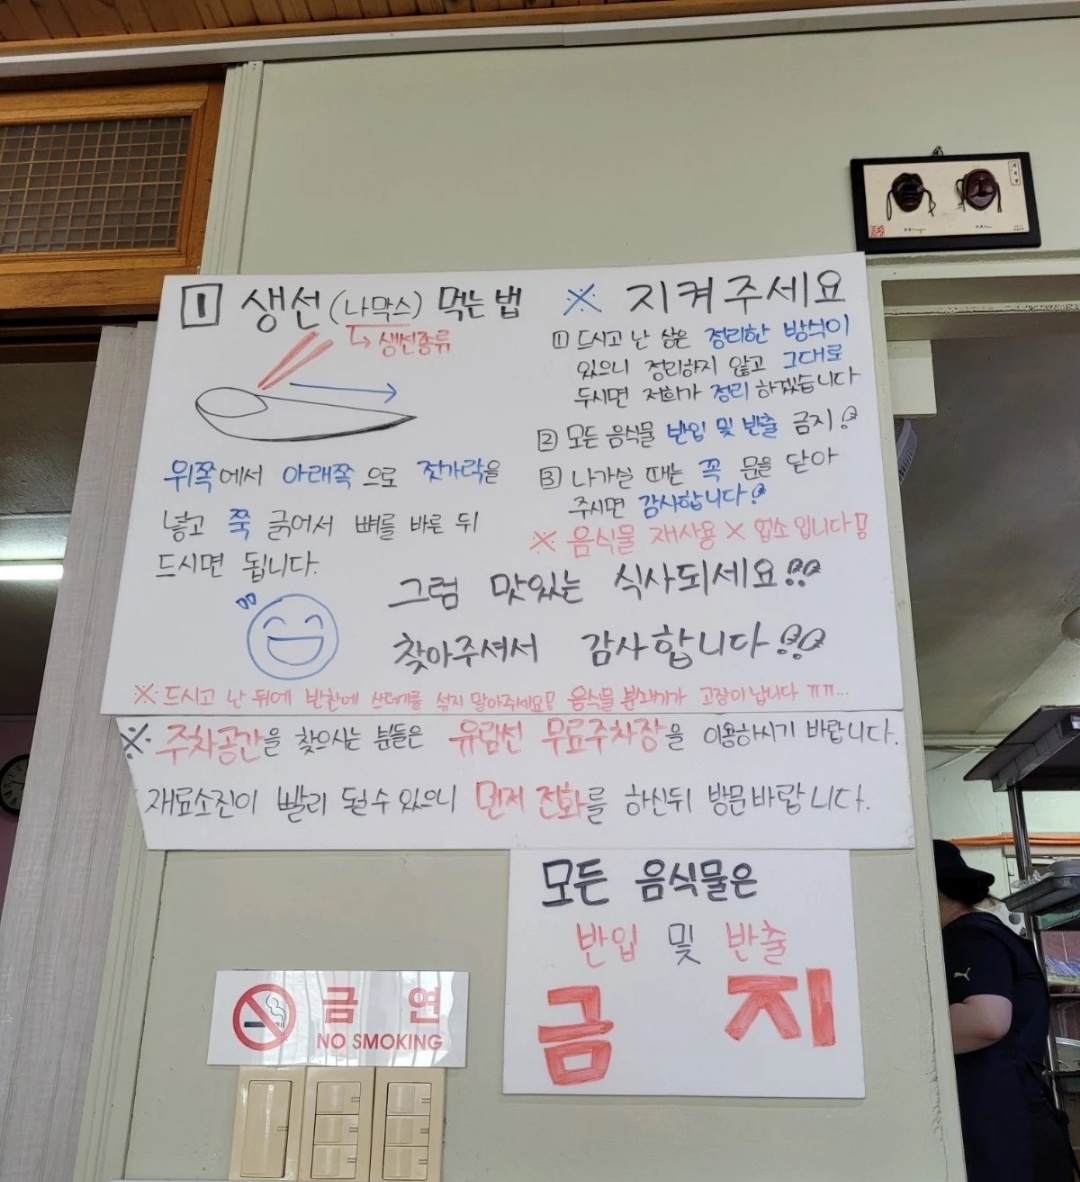 1 생선(나막스) 먹는 법
↳ 생선종류
위쪽에서 아래쪽으로 젓가락을
넣고 쭉 긁어서 뼈를 바른 뒤
드시면 됩니다.
※ 지켜주세요
1 드시고 난 상은 정리한 방식이
있으니 정리하지 않고 그대로
두시면 저희가 정리 하겠습니다
2 모든 음식물 반입 및 반출 금지!
3 나가실 때는 꼭 문을 닫아
주시면 감사합니다!
※ 음식물 재사용 X 업소입니다!
그럼 맛있는 식사되세요!!
찾아주셔서 감사합니다!!
※ 드시고 난 뒤에 반찬에 쓰레기를 섞지 말아주세요! 음식물 분쇄기가 고장이납니다 ㅠㅠ...
※ 주차공간을 찾으시는 분들은 유람선 무료주차장을 이용하시기 바랍니다.
재료소진이 빨리 될수 있으니 먼저 전화를 하신뒤 방문바랍니다.
모든 음식물은
반입 및 반출
금지
금연
NO SMOKING